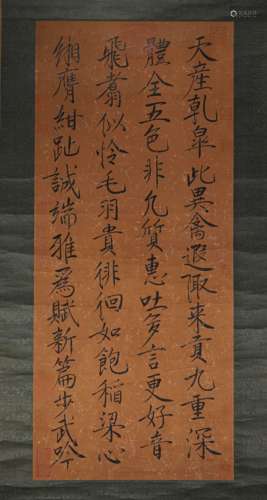 天産乾皐此異禽遐陬来貢九重深
體全五色非凡質惠吐多言更好音
飛翥似怜毛羽貴徘徊如飽稻粱心
緗膺紺趾誠端雅為賦新篇步武吟